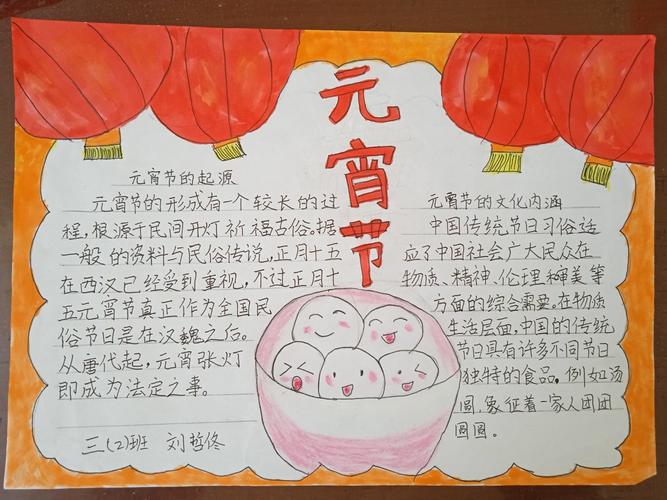 元宵节
元宵节的起源
元宵节的形成有一个较长的过
程，根源于民间开灯祈福古俗。据
一般的资料与民俗传说，正月十五
在西汉已经受到重视，不过正月十
五元宵节真正作为全国民
俗节日是在汉魏之后。
从唐代起，元宵张灯
即成为法定之事。
三(2)班 刘哲佟
元宵节的文化内涵
中国传统节日习俗适
应了中国社会广大民众在
物质、精神、伦理和审美等
方面的综合需要。在物质
生活层面，中国的传统
节日具有许多不同节日
独特的食品。例如汤
圆，象征着一家人团团
圆圆。